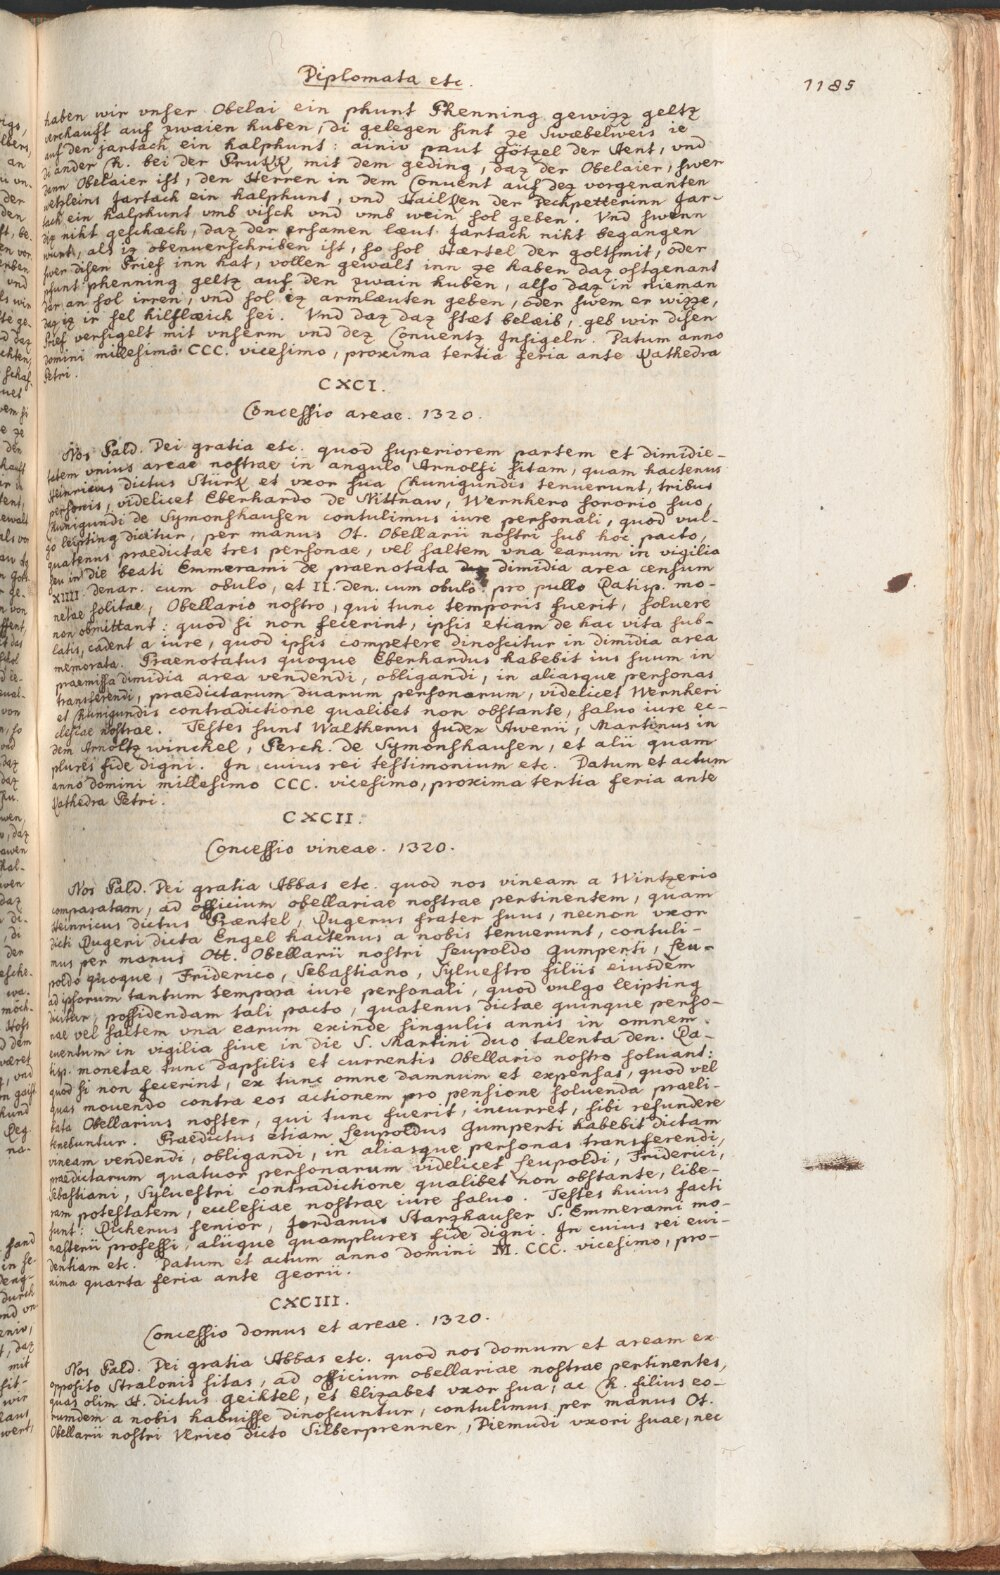 Diplomata etc.
1185
haben wir vnser Obelai ein phunt Phenning gewizz geltz
verchauft auf zwaien huben, di gelegen sint ze Swæbelweis ie
auf den jartach ein halphunt: ainiv paut Götzel der Aent, vnd
di ander H. bei der Prukk mit dem geding, daz der Obelaier, swer
dann Obelaier ist, den Herren in dem Convent auf dez vorgenanten
wetzleins Jartach ein halphunt, vnd Hailken der Pechpetterinn Jar-
tach ein halphunt vmb visch vnd vmb wein sol geben. Vnd swenn
diz niht geschæch, daz der ersamen læut Jartach niht begangen
wurd, als iz obenverschriben ist, so sol Hærtel der goltsmit, oder
swer disen Prief inn hat, vollen gewalt inn ze haben daz oftgenant
phunt phenning geltz auf den zwain huben, also daz in nieman
dar an sol irren, vnd sol iz armlæuten geben, oder swem er wizze,
daz iz ir sel hilflæich sei. Vnd daz daz stæt beleib, geb wir disen
brief versigelt mit vnserm vnd dez Conventz Insigeln. Datum anno
domini millesimo CCC. vicesimo, proxima tertia feria ante Cathedra
Petri.
CXCI.
Concessio areae. 1320.
Nos Bald. Dei gratia etc. quod superiorem partem et dimidie-
tatem vnius areae nostrae in angulo Arnolfi sitam, quam hactenus
Heinricus dictus Sturz et vxor sua Chunigundis tenuerunt, tribus
personis, videlicet Eberhardo de Nittnaw, Wernhero sororio suo,
Chunigundi de Symonshausen contulimus iure personali, quod vul-
go leipting dicitur, per manus Ot. Obellarii nostri sub hoc pacto,
quatenus praedictae tres personae, vel saltem vna earum in vigilia
seu in die beati Emmerami de praenotata dimidia area censum
XIIII denar. cum obulo, et II. den. cum obulo pro pullo Ratisp. mo-
netae solitae, Obellario nostro, qui tunc temporis fuerit, soluere
non obmittant: quod si non fecerint, ipsis etiam de hac vita sub-
latis, cadent a iure, quod ipsis competere dinoscitur in dimidia area
memorata. Praenotatus quoque Eberhardus habebit ius suum in
praemissa dimidia area vendendi, obligandi, in aliasque personas
transferendi, praedictarum duarum personarum, videlicet Wernheri
et Chunigundis contradictione qualibet non obstante, saluo iure ec-
clesiae nostrae. Testes sunt Waltherus Judex Awenii, Martinus in
dem Arnoltz winchel, Perch. de Symonshausen, et alii quam
plures fide digni. In cuius rei testimonium etc. Datum et actum
anno domini millesimo CCC. vicesimo, proxima tertia feria ante
Cathedra Petri.
CXCII.
Concessio vineae. 1320.
Nos Bald. Dei gratia Abbas etc. quod nos vineam a Wintzerio
comparatam, ad officium obellariae nostrae pertinentem, quam
Heinricus dictus Præntel, Rugerus frater suus, necnon vxor
dicti Rugeri dicta Engel hactenus a nobis tenuerunt, contuli-
mus per manus Ott. Obellarii nostri Leupoldo Gumperti, Leu-
poldo quoque, Friderico, Sebastiano, Syluestro filiis eiusdem
ad ipsorum tantum tempora iure personali, quod vulgo leipting
dicitur, possidendam tali pacto, quatenus dictae quinque perso-
nae vel saltem vna earum exinde singulis annis in omnem
euentum in vigilia siue in die S. Martini duo talenta den. Ra-
tisp. monetae tunc dapsilis et currentis Obellario nostro soluant:
quod si non fecerint, ex tunc omne damnum et expensas, quod vel
quas mouendo contra eos actionem pro pensione soluenda praeli-
bata Obellarius noster, qui tunc fuerit, incurret, sibi refundere
tenebuntur. Praedictus etiam Leupoldus Gumperti habebit dictam
vineam vendendi, obligandi, in aliasque personas transferendi,
praedictarum quatuor personarum videlicet Leupoldi, Friderici,
Sebastiani, Syluestri contradictione qualibet non obstante, libe-
ram potestatem, ecclesiae nostrae iure saluo. Testes huius facti
sunt: Richerus senior, Jordanus Starzhauser S. Emmerami mo-
nasterii professi, aliique quamplures fide digni. In cuius rei eui-
dentiam etc. Datum et actum anno domini M. CCC. vicesimo, pro-
xima quarta feria ante Georii.
CXCIII.
Concessio domus et areae. 1320.
Nos Bald. Dei gratia Abbas etc. quod nos domum et aream ex
opposito Stralonis sitas, ad officium obellariae nostrae pertinentes,
quas olim H. dictus Geihtel, et Elizabet vxor sua, ac Ch. filius eo-
rumdem a nobis habuisse dinoscuntur, contulimus per manus Ot.
Obellarii nostri Vlrico dicto Silberprenner, Diemudi vxori suae, nec